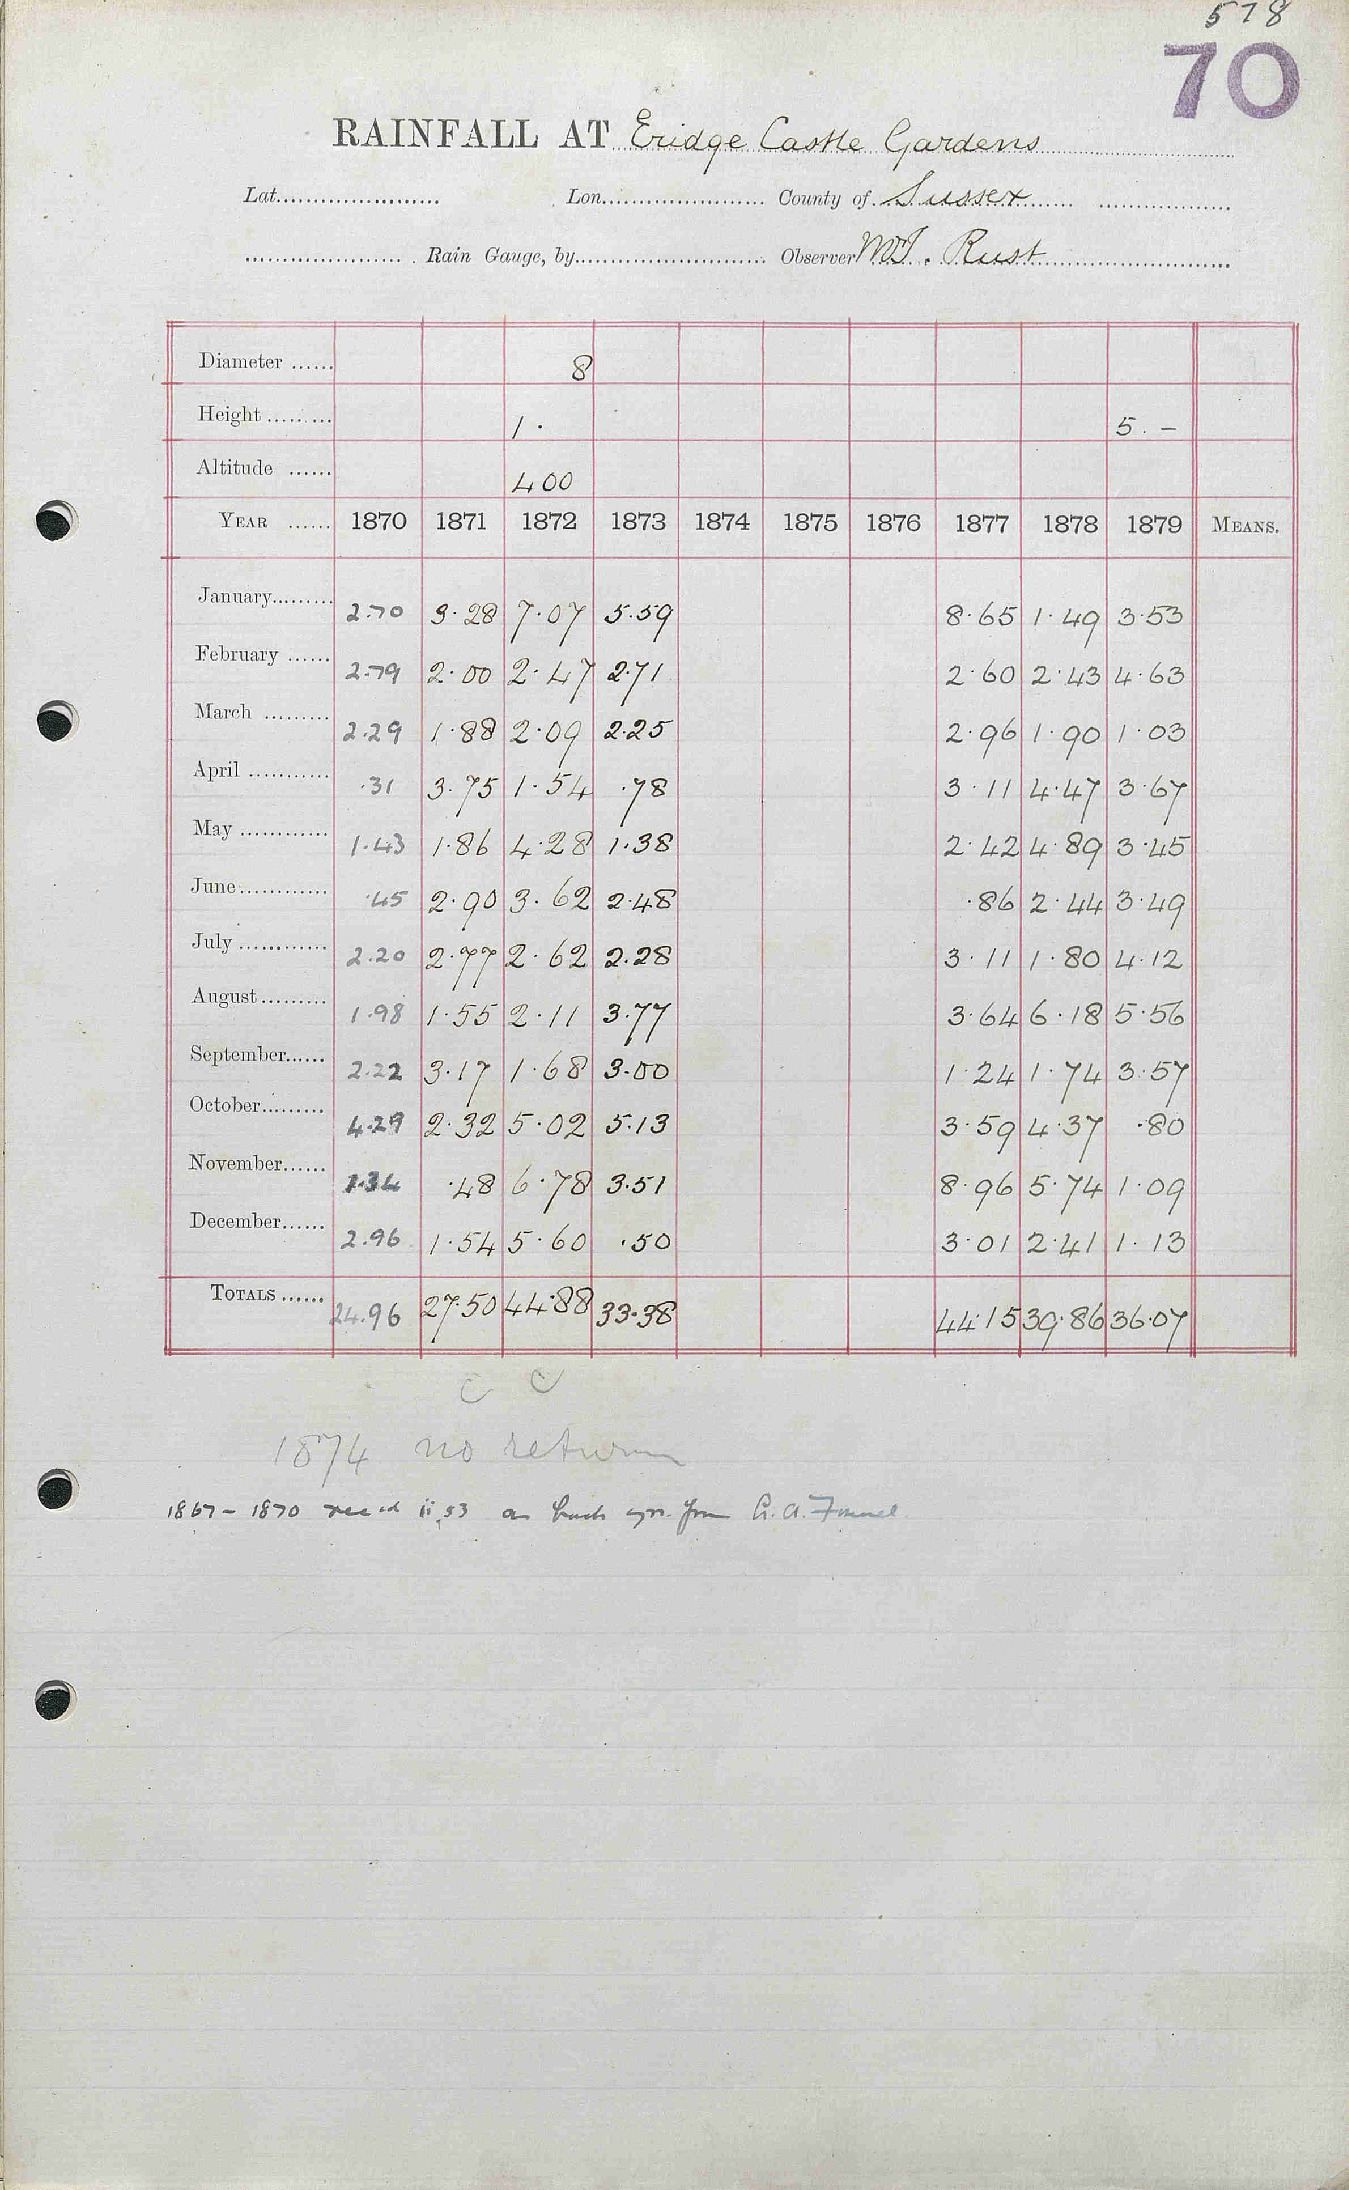 578
70
RAINFALL AT Eridge Castle Gardens
Lat. Lon. County of Sussex
Rain Gauge, by Observer Rust
Diameter 8
Height 1. 5. –
Altitude 400
YEAR 1870 1871 1872 1873 1874 1875 1876 1877 1878 1879 MEANS.
January 2.70 3.28 7.07 5.59 8.65 1.49 3.53
February 2.79 2.00 2.47 2.71 2.60 2.43 4.63
March 2.29 1.88 2.09 2.25 2.96 1.90 1.03
April .31 3.75 1.54 .78 3.11 4.47 3.67
May 1.43 1.86 4.28 1.38 2.42 4.89 3.45
June .45 2.90 3.62 2.48 .86 2.44 3.49
July 2.20 2.77 2.62 2.28 3.11 1.80 4.12
August 1.98 1.55 2.11 3.77 3.64 6.18 5.56
September 2.22 3.17 1.68 3.00 1.24 1.74 3.57
October 4.29 2.32 5.02 5.13 3.59 4.37 .80
November 1.34 .48 6.78 3.51 8.96 5.74 1.09
December 2.96 1.54 5.60 .50 3.01 2.41 1.13
TOTALS 24.96 27.50 44.88 33.38 44.15 39.86 36.07
C C
1874 no return
1867 – 1870 rec'd ii.53 as back yrs. from G. A.